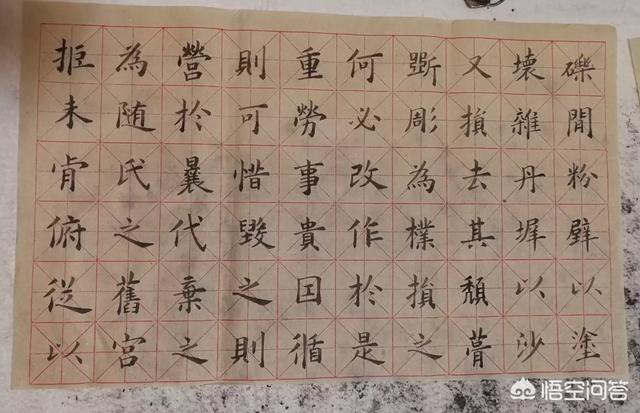 礫閒粉壁以塗
壞雜丹墀以沙
又損去其頹葺
斵彫為樸損之
何必改作於是
重勞事貴因循
則可惜毀之則
營於曩代棄之
為随氏之舊宮
拒未肯俯從以
悟空问答